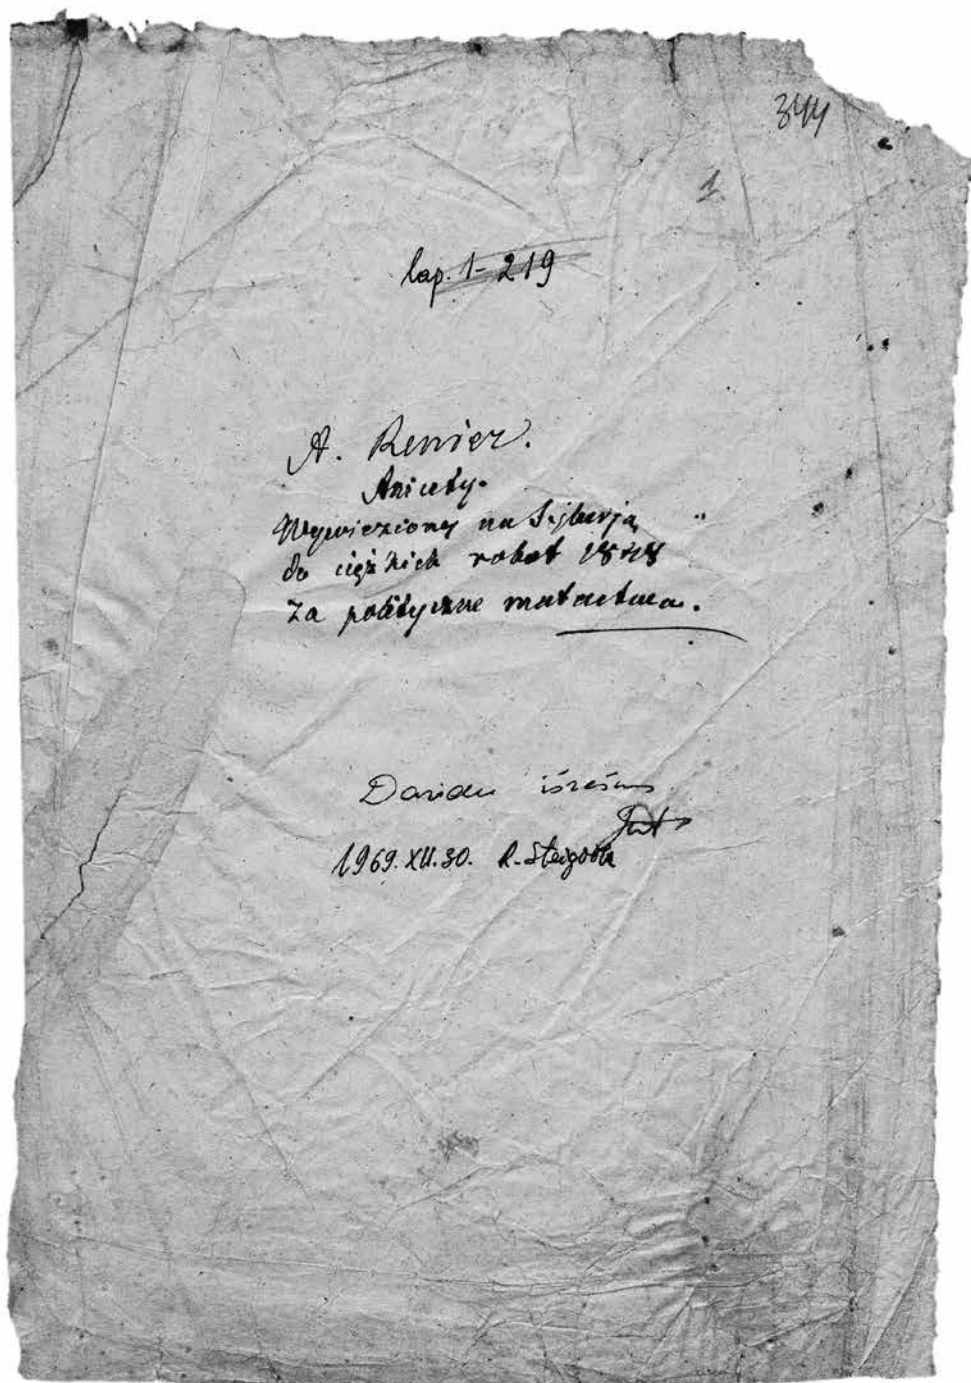 344
1
lap. 1-219
A. Renier.
Anicety.
Wywieziony na Syberją
do ciężkich robot 1848
za polityczne matactwa.
Davidu
1969.XII.30. R. Steigvilė